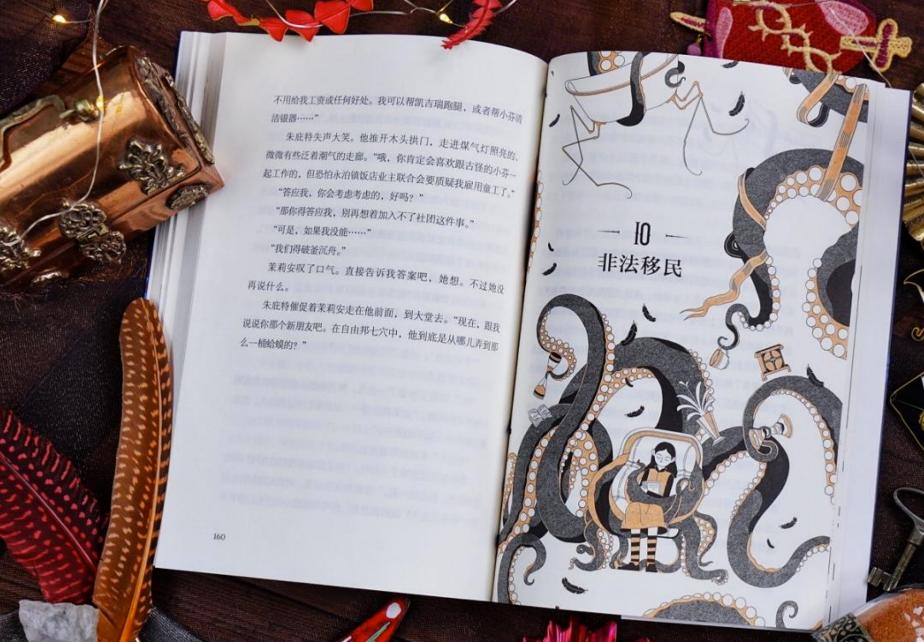 不用给我工资或任何好处。我可以帮凯吉瑞跑腿，或者帮小芬清
洁银器……”
朱庇特失声大笑。他推开木头拱门，走进煤气灯照亮的、
微微有些泛着潮气的走廊。“哦，你肯定会喜欢跟古怪的小芬一
起工作的，但恐怕永治镇饭店业主联合会要质疑我雇用童工了。”
“答应我，你会考虑考虑的，好吗？”
“那你得答应我，别再想着加入不了社团这件事。”
“可是，如果我没能……”
“我们得破釜沉舟。”
茉莉安叹了口气。直接告诉我答案吧，她想。不过她没
再说什么。
朱庇特催促着茉莉安走在他前面，到大堂去。“现在，跟我
说说你那个新朋友吧。在自由邦七穴中，他到底是从哪儿弄到那
么一桶蛤蟆的？”
160
10
非法移民